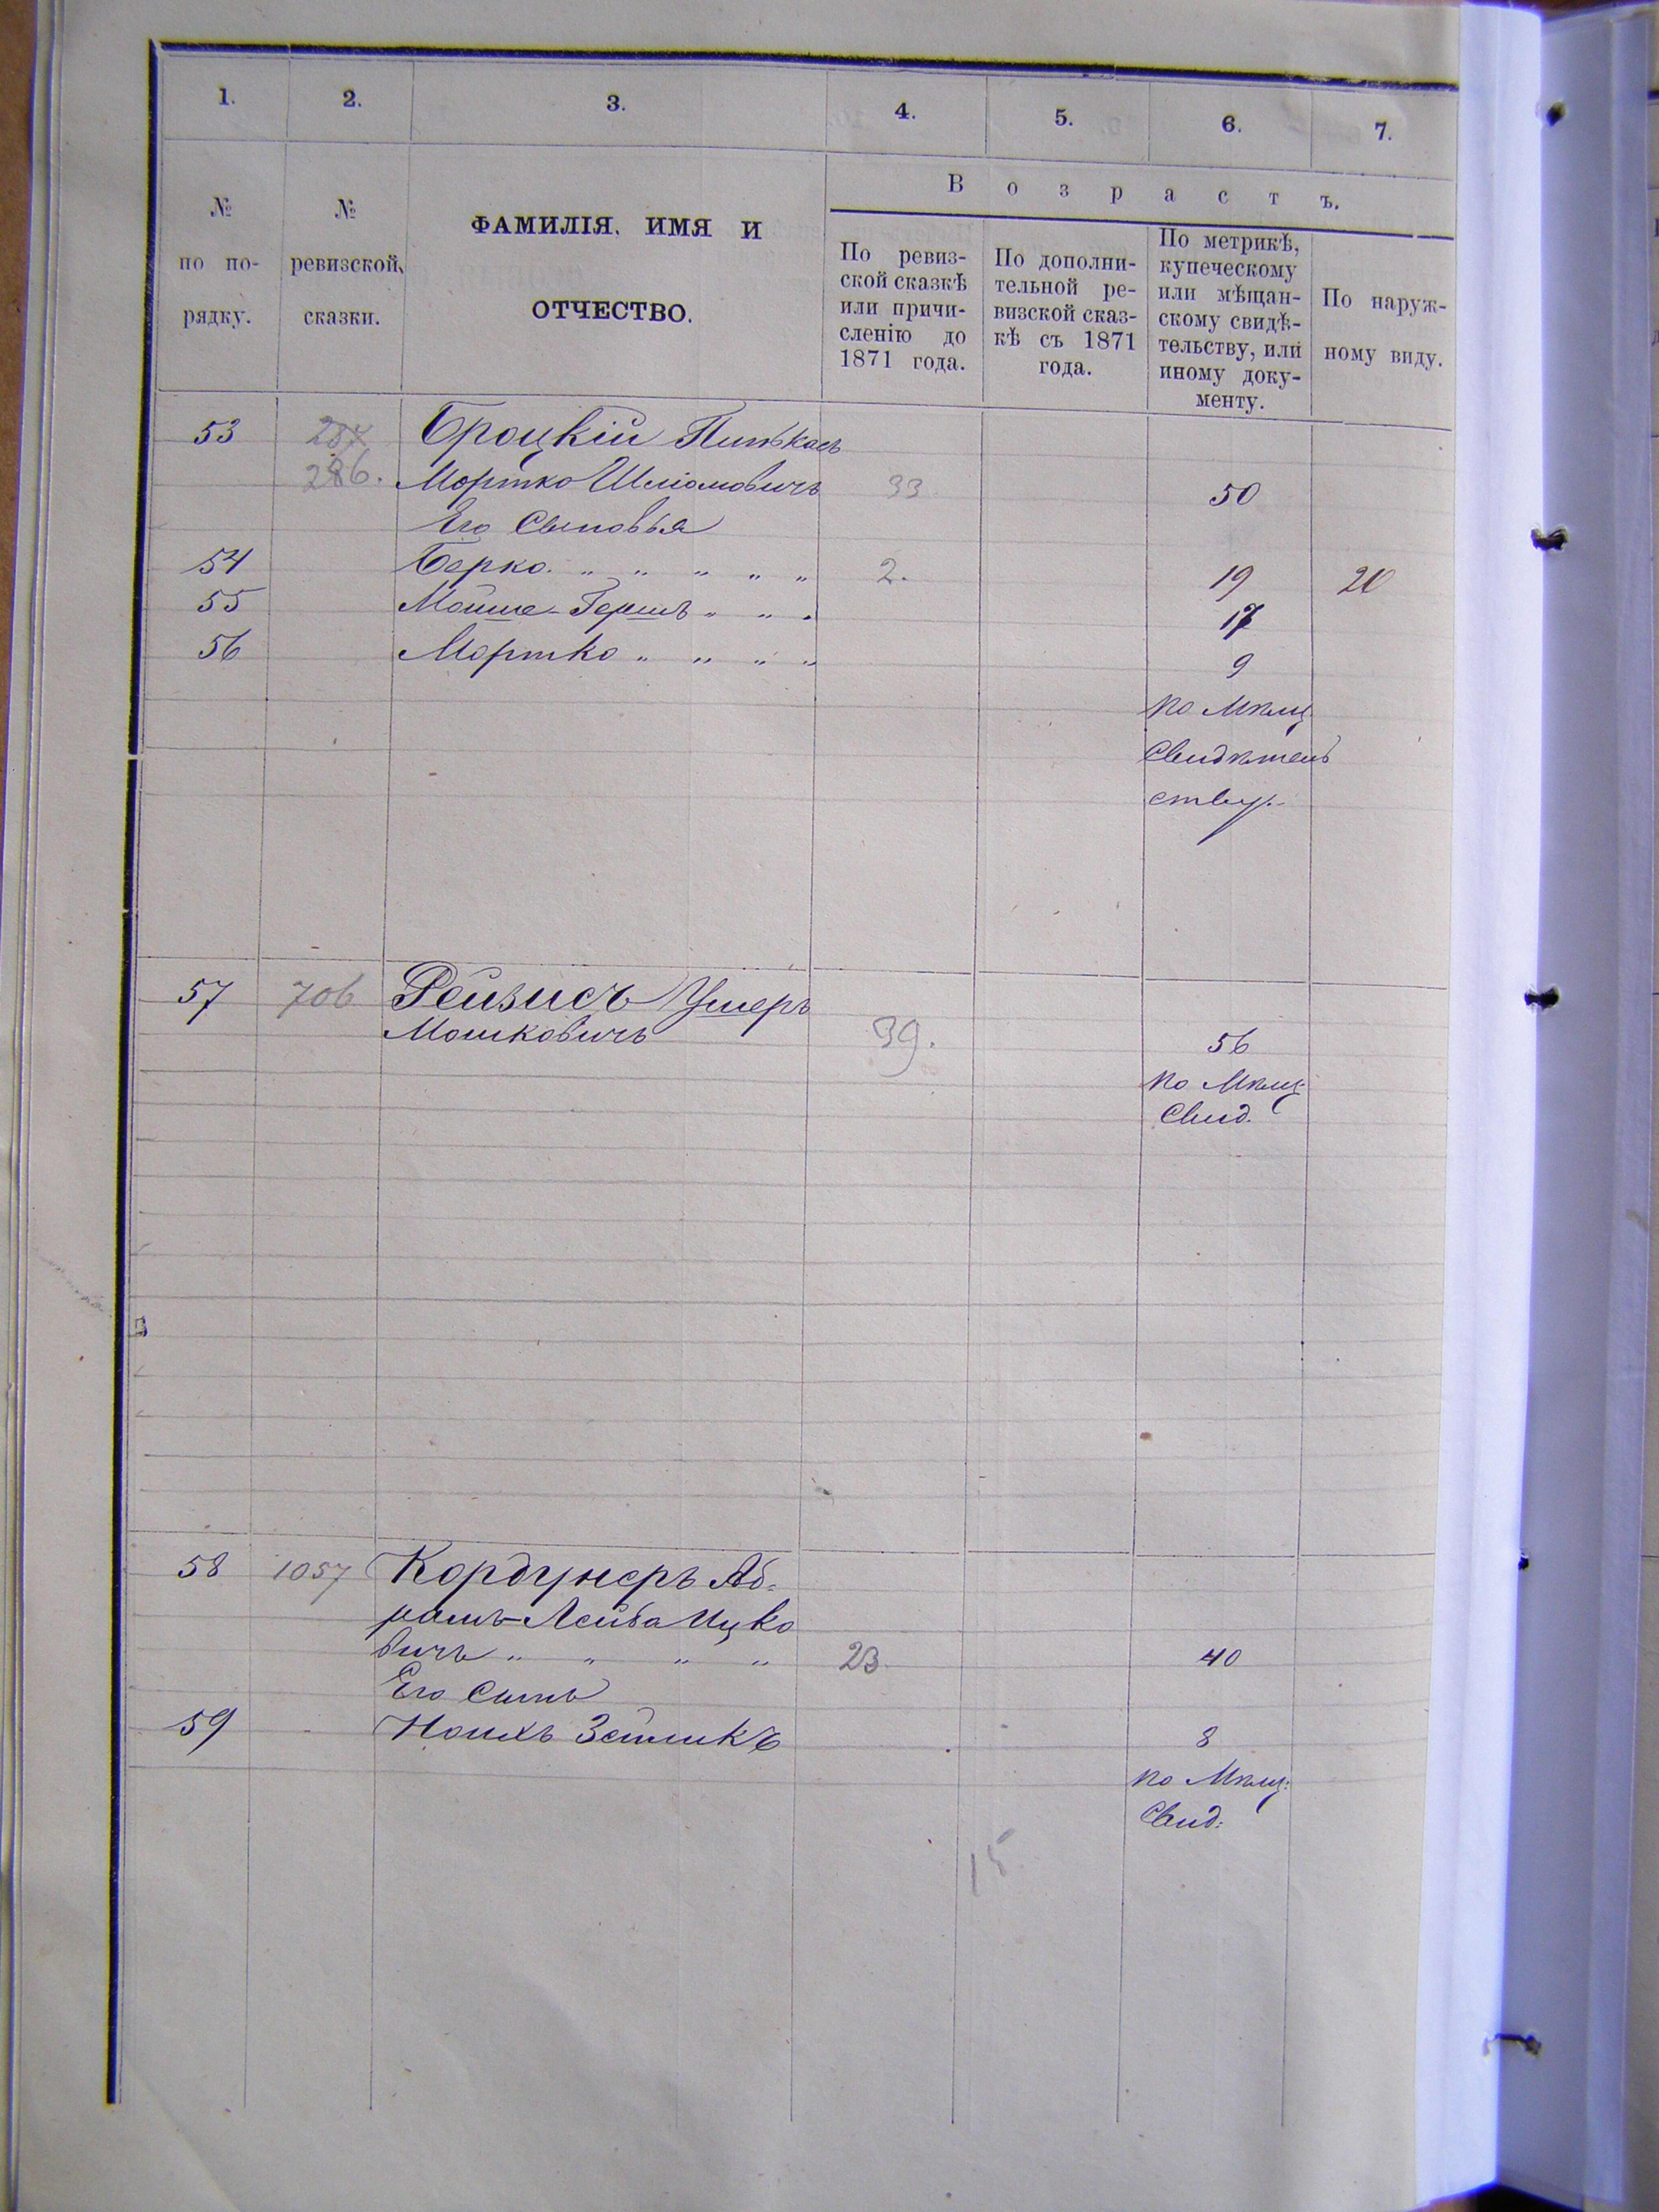 1. 2. 3. 4. 5. 6. 7.
№ по по-рядку.
№ ревизской сказки.
ФАМИЛІЯ, ИМЯ И
ОТЧЕСТВО.
Возрастъ.
По ревиз-
ской сказкѣ
или причи-
сленію до
1871 года.
По дополни-
тельной ре-
визской сказ-
кѣ съ 1871
года.
По метрикѣ,
купеческому
или мѣщан-
скому свидѣ-
тельству, или
иному доку-
менту.
По наруж-
ному виду.
53 287 Броцкій Пинькась
286. Мортко Шліомовичъ 33 50
Его Сыновья
54 Берко " " " " " 2. 19 20
55 Мойше-Гершъ " " " 17
56 Мортко " " " " 9
по Мѣщ
Свидѣтель
ству.
57 706 Рейзисъ Ушеръ
Мошковичъ 39. 56
по Мѣщ
Свид.
58 1057 Кордунеръ Аб-
рамъ-Лейба Ицко
вичъ " " " " 23. 40
Его Сынъ
59 Ноихъ Зейликъ 8
по Мѣщ:
Свид:
15